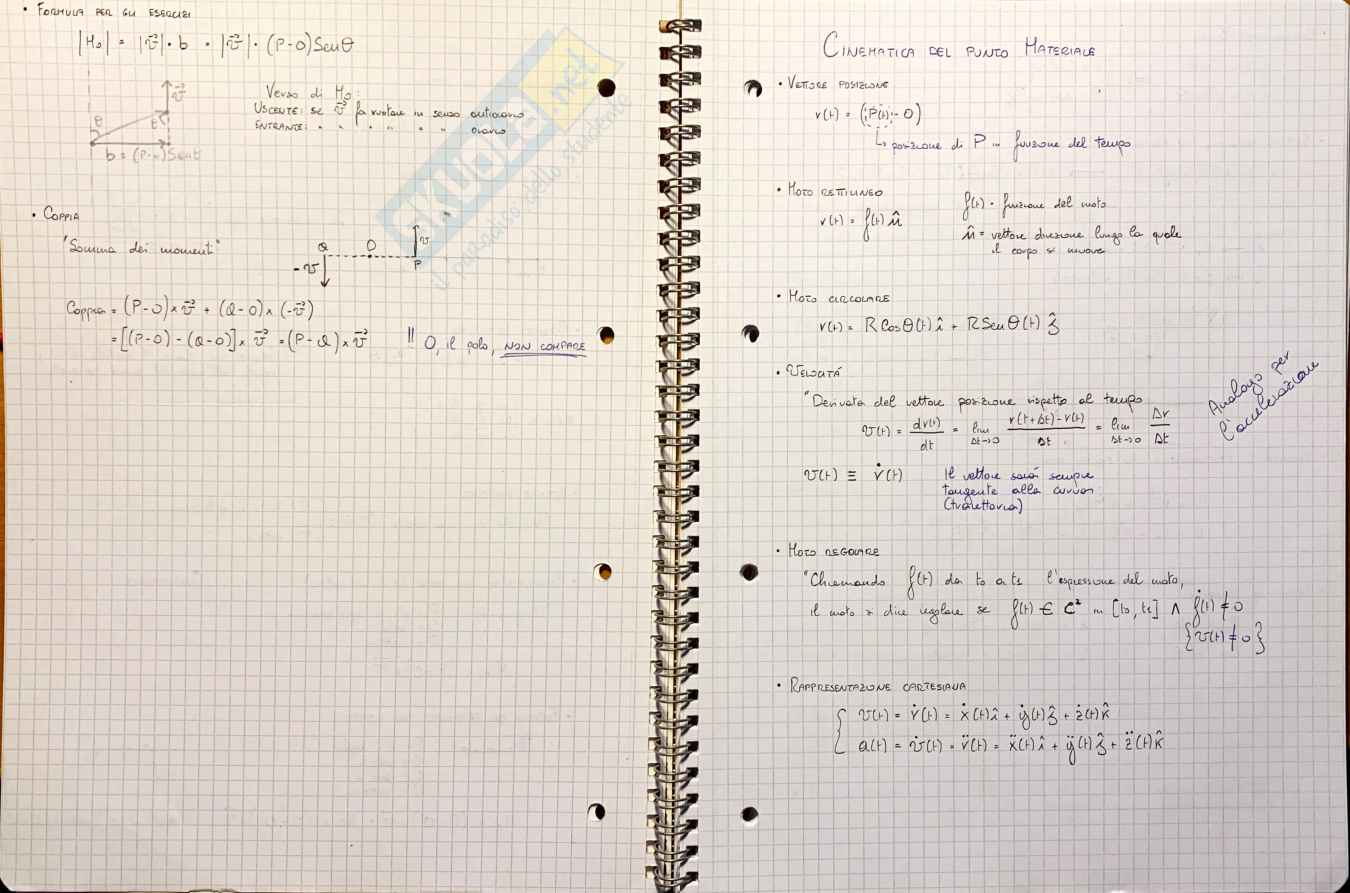 • FORMULA PER GLI ESERCIZI
|M₀| = |v⃗|· b = |v⃗|· (P-O) Senθ
v⃗
θ
θ
b = (P-O)Senθ
Verso di M₀:
USCENTE: se v⃗ fa ruotare in senso antiorario
ENTRANTE: " " " " " orario
• COPPIA
"Somma dei momenti"
Q O v
-v P
Coppia = (P-O) × v⃗ + (Q-O) × (-v⃗)
= [(P-O) - (Q-O)] × v⃗ = (P-Q) × v⃗ !! O, il polo, NON COMPARE
SKUOLA.net
il paradiso dello studente
CINEMATICA DEL PUNTO MATERIALE
• VETTORE POSIZIONE
r(t) = (P(t) - O)
↳ posizione di P in funzione del tempo
• MOTO RETTILINEO
r(t) = f(t) û
f(t) = funzione del moto
û = vettore direzione lungo la quale
il corpo si muove
• MOTO CIRCOLARE
r(t) = R Cosθ(t) î + R Senθ(t) ĵ
• VELOCITÁ
"Derivata del vettore posizione rispetto al tempo
v(t) = dr(t)/dt = lim Δt→0 r(t+Δt)-r(t)/Δt = lim Δt→0 Δr/Δt
Analogo per
l'accelerazione
v(t) ≡ ṙ(t)
Il vettore sará sempre
tangente alla curva
(traiettoria)
• MOTO REGOLARE
"Chiamando f(t) da t0 a t1 l'espressione del moto,
il moto si dice regolare se f(t) ∈ C² in [t0, t1] ∧ ḟ(t) ≠ 0
{v(t) ≠ 0}
• RAPPRESENTAZIONE CARTESIANA
v(t) = ṙ(t) = ẋ(t)î + ẏ(t)ĵ + ż(t)k̂
a(t) = v̇(t) = r̈(t) = ẍ(t)î + ÿ(t)ĵ + z̈(t)k̂